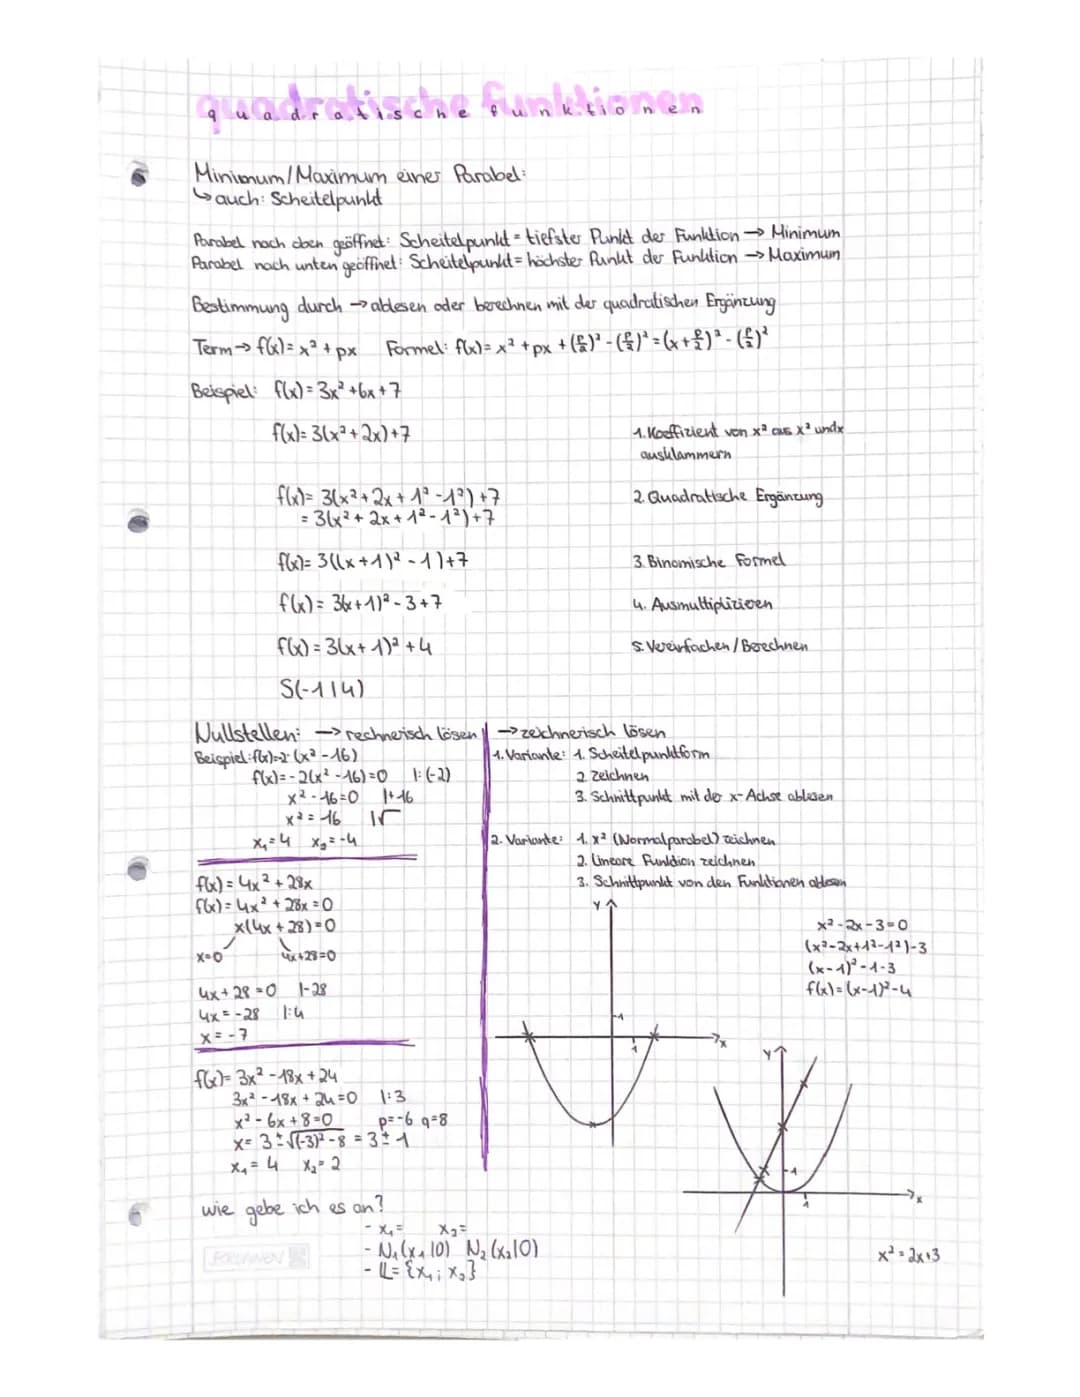 quadratische funktionen
Minimum/Maximum einer Parabel:
↳ auch: Scheitelpunkt
Parabel nach oben geöffnet: Scheitelpunkt = tiefster Punkt der Funktion → Minimum
Parabel nach unten geöffnet: Scheitelpunkt = höchster Punkt der Funktion → Maximum
Bestimmung durch → ablesen oder berechnen mit der quadratischen Ergänzung
Term → f(x) = x² + px   Formel: f(x) = x² + px + (p/2)² - (p/2)² = (x + p/2)² - (p/2)²
Beispiel: f(x) = 3x² + 6x + 7
f(x) = 3(x² + 2x) + 7   1. Koeffizient von x² aus x² und x
ausklammern
f(x) = 3(x² + 2x + 1² - 1²) + 7   2. Quadratische Ergänzung
= 3(x² + 2x + 1² - 1²) + 7
f(x) = 3((x + 1)² - 1) + 7   3. Binomische Formel
f(x) = 3(x + 1)² - 3 + 7   4. Ausmultiplizieren
f(x) = 3(x + 1)² + 4   5. Vereinfachen / Berechnen
S(-1|4)
Nullstellen: → rechnerisch lösen
Beispiel: f(x) = -2 (x² - 16)
f(x) = -2(x² - 16) = 0   |: (-2)
x² - 16 = 0   |+16
x² = 16   |√
x₁ = 4   x₂ = -4
f(x) = 4x² + 28x
f(x) = 4x² + 28x = 0
x(4x + 28) = 0
x = 0   4x + 28 = 0
4x + 28 = 0   |-28
4x = -28   |:4
x = -7
f(x) = 3x² - 18x + 24
3x² - 18x + 24 = 0   |:3
x² - 6x + 8 = 0   p = -6 q = 8
x = 3 ± √(-3)² - 8 = 3 ± 1
x₁ = 4   x₂ = 2
→ zeichnerisch lösen
1. Variante: 1. Scheitelpunktform
2. zeichnen
3. Schnittpunkt mit der x-Achse ablesen
2. Variante: 1. x² (Normalparabel) zeichnen
2. Lineare Funktion zeichnen
3. Schnittpunkt von den Funktionen ablesen
y
1
1
x
x² - 2x - 3 = 0
(x² - 2x + 1² - 1²) - 3
(x - 1)² - 1 - 3
f(x) = (x - 1)² - 4
y
1
1
x
x² = 2x + 3
wie gebe ich es an?
- x₁ =   x₂ =
- N₁ (x₁|0)   N₂ (x₂|0)
- 𝕃 = {x₁; x₂}